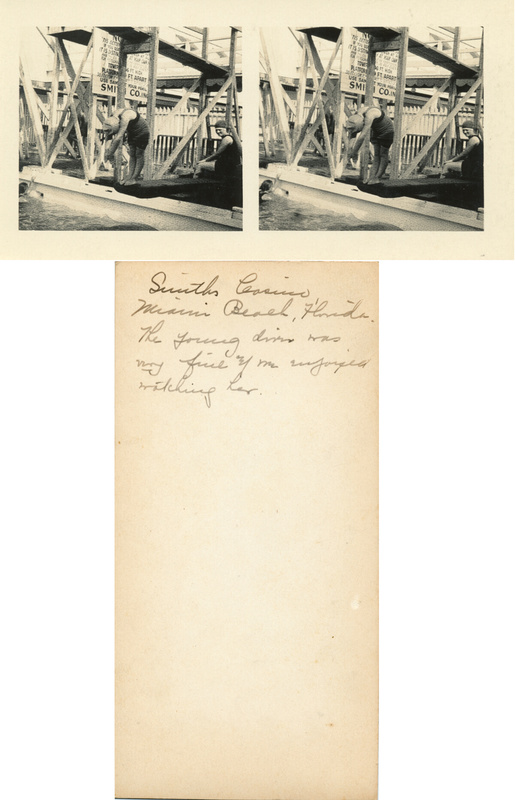 FT. APART
SMI
CO. IN
FT. APART
SMI
CO. IN
Smiths Casino
Miami Beach, Florida.
The young diver was
very fine & we enjoyed
watching her.